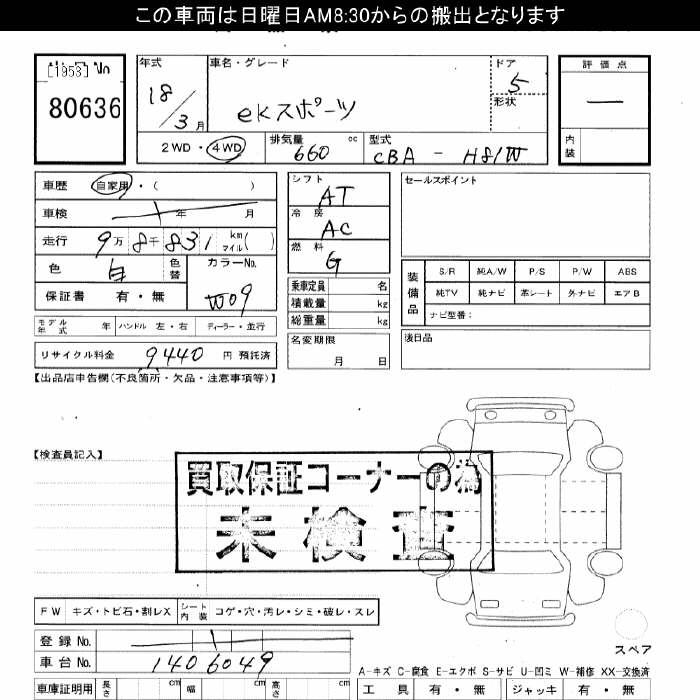 この車両は日曜日AM8:30からの搬出となります
[1953] No
80636
年式 車名・グレード ドア 評価点
18/3月 eKスポーツ 5 —
形状
2WD・4WD 排気量 660 cc 型式 CBA - H81W 内装
車歴 自家用・( )
車検 年 月
走行 9万8千831 km マイル( )
色 白 色替 カラーNo. W09
保証書 有・無
モデル年式 年 ハンドル 左・右 ディーラー・並行
リサイクル料金 9440 円 預託済
シフト AT
冷房 AC
燃料 G
乗車定員 名
積載量 kg
総重量 kg
名変期限
月 日
セールスポイント
装備品 S/R 純A/W P/S P/W ABS
純TV 純ナビ 革シート 外ナビ エアB
ナビ型番:
後日品
【出品店申告欄(不良箇所・欠品・注意事項等)】
【検査員記入】
買取保証コーナーの為
未検査
FW キズ・トビ石・割レX シート内装 コゲ・穴・汚レ・シミ・破レ・スレ
登録No.
車台No. 1406049
スペア
A-キズ C-腐食 E-エクボ S-サビ U-凹ミ W-補修 XX-交換済
車庫証明用 長さ cm 幅 cm 高さ cm 工具 有・無 ジャッキ 有・無